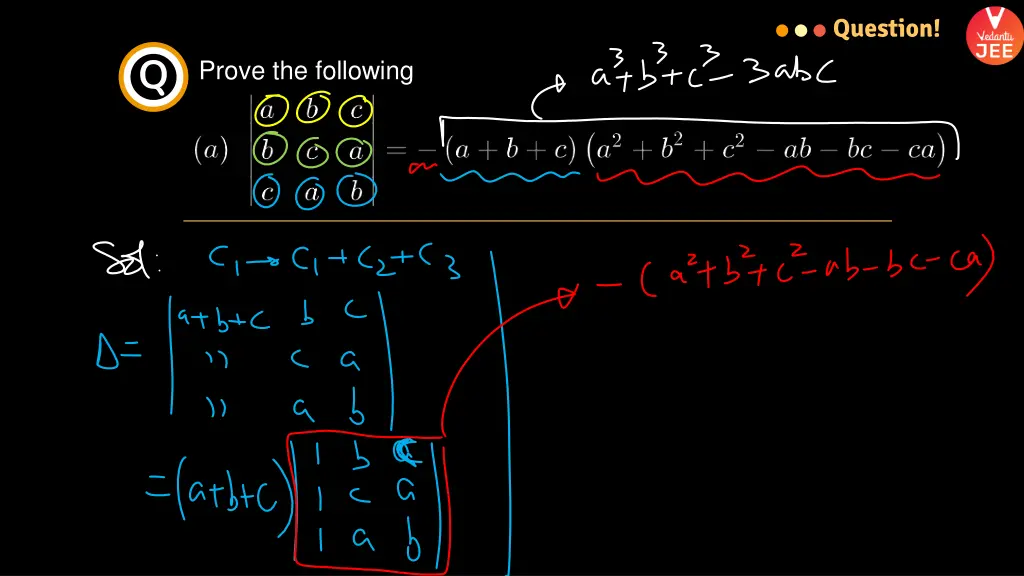 Question!
Vedantu
JEE
Q Prove the following
a³+b³+c³-3abc
(a) | a b c |
| b c a | = - (a + b + c) (a² + b² + c² − ab − bc − ca)
| c a b |
Sol:
C₁ → C₁ + C₂ + C₃
- (a²+b²+c²-ab-bc-ca)
| a+b+c b c |
Δ = | " c a |
| " a b |
| 1 b c |
= (a+b+c) | 1 c a |
| 1 a b |